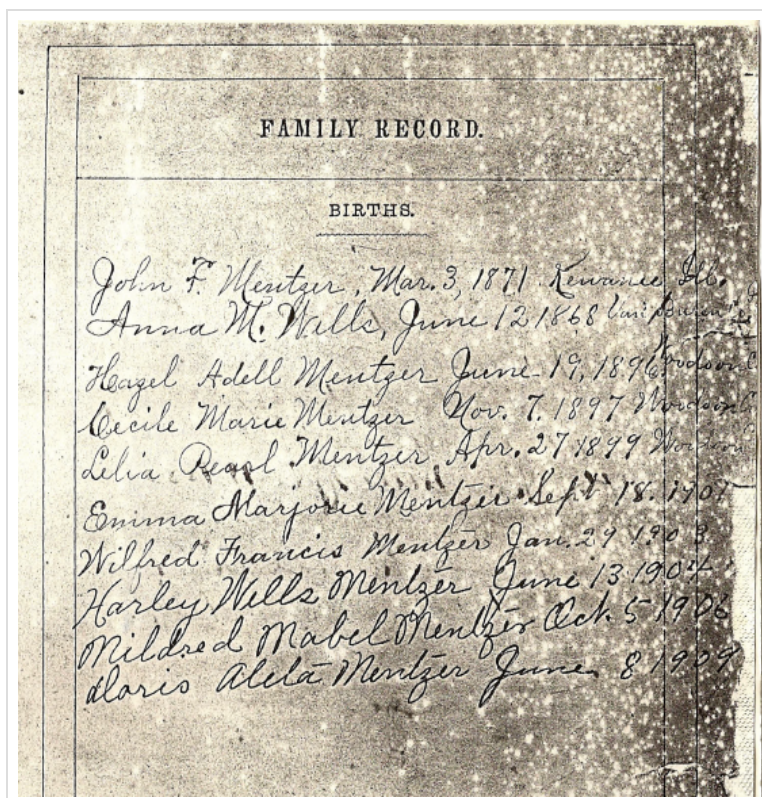 FAMILY RECORD.
BIRTHS.
John F. Mentzer, Mar. 3, 1871 Kewanee Ill.
Anna M. Wells, June 12 1868 Van Buren
Hazel Adell Mentzer June 19, 1896 Woodson
Cecile Marie Mentzer Nov. 7, 1897 Woodson
Lelia Pearl Mentzer Apr. 27 1899 Woodson
Emma Marjorie Mentzer Sept 18. 1901
Wilfred Francis Mentzer Jan. 29 1903
Harley Wells Mentzer June 13 1904
Mildred Mabel Mentzer Oct. 5 1906
Doris Aleta Mentzer June 8 1909